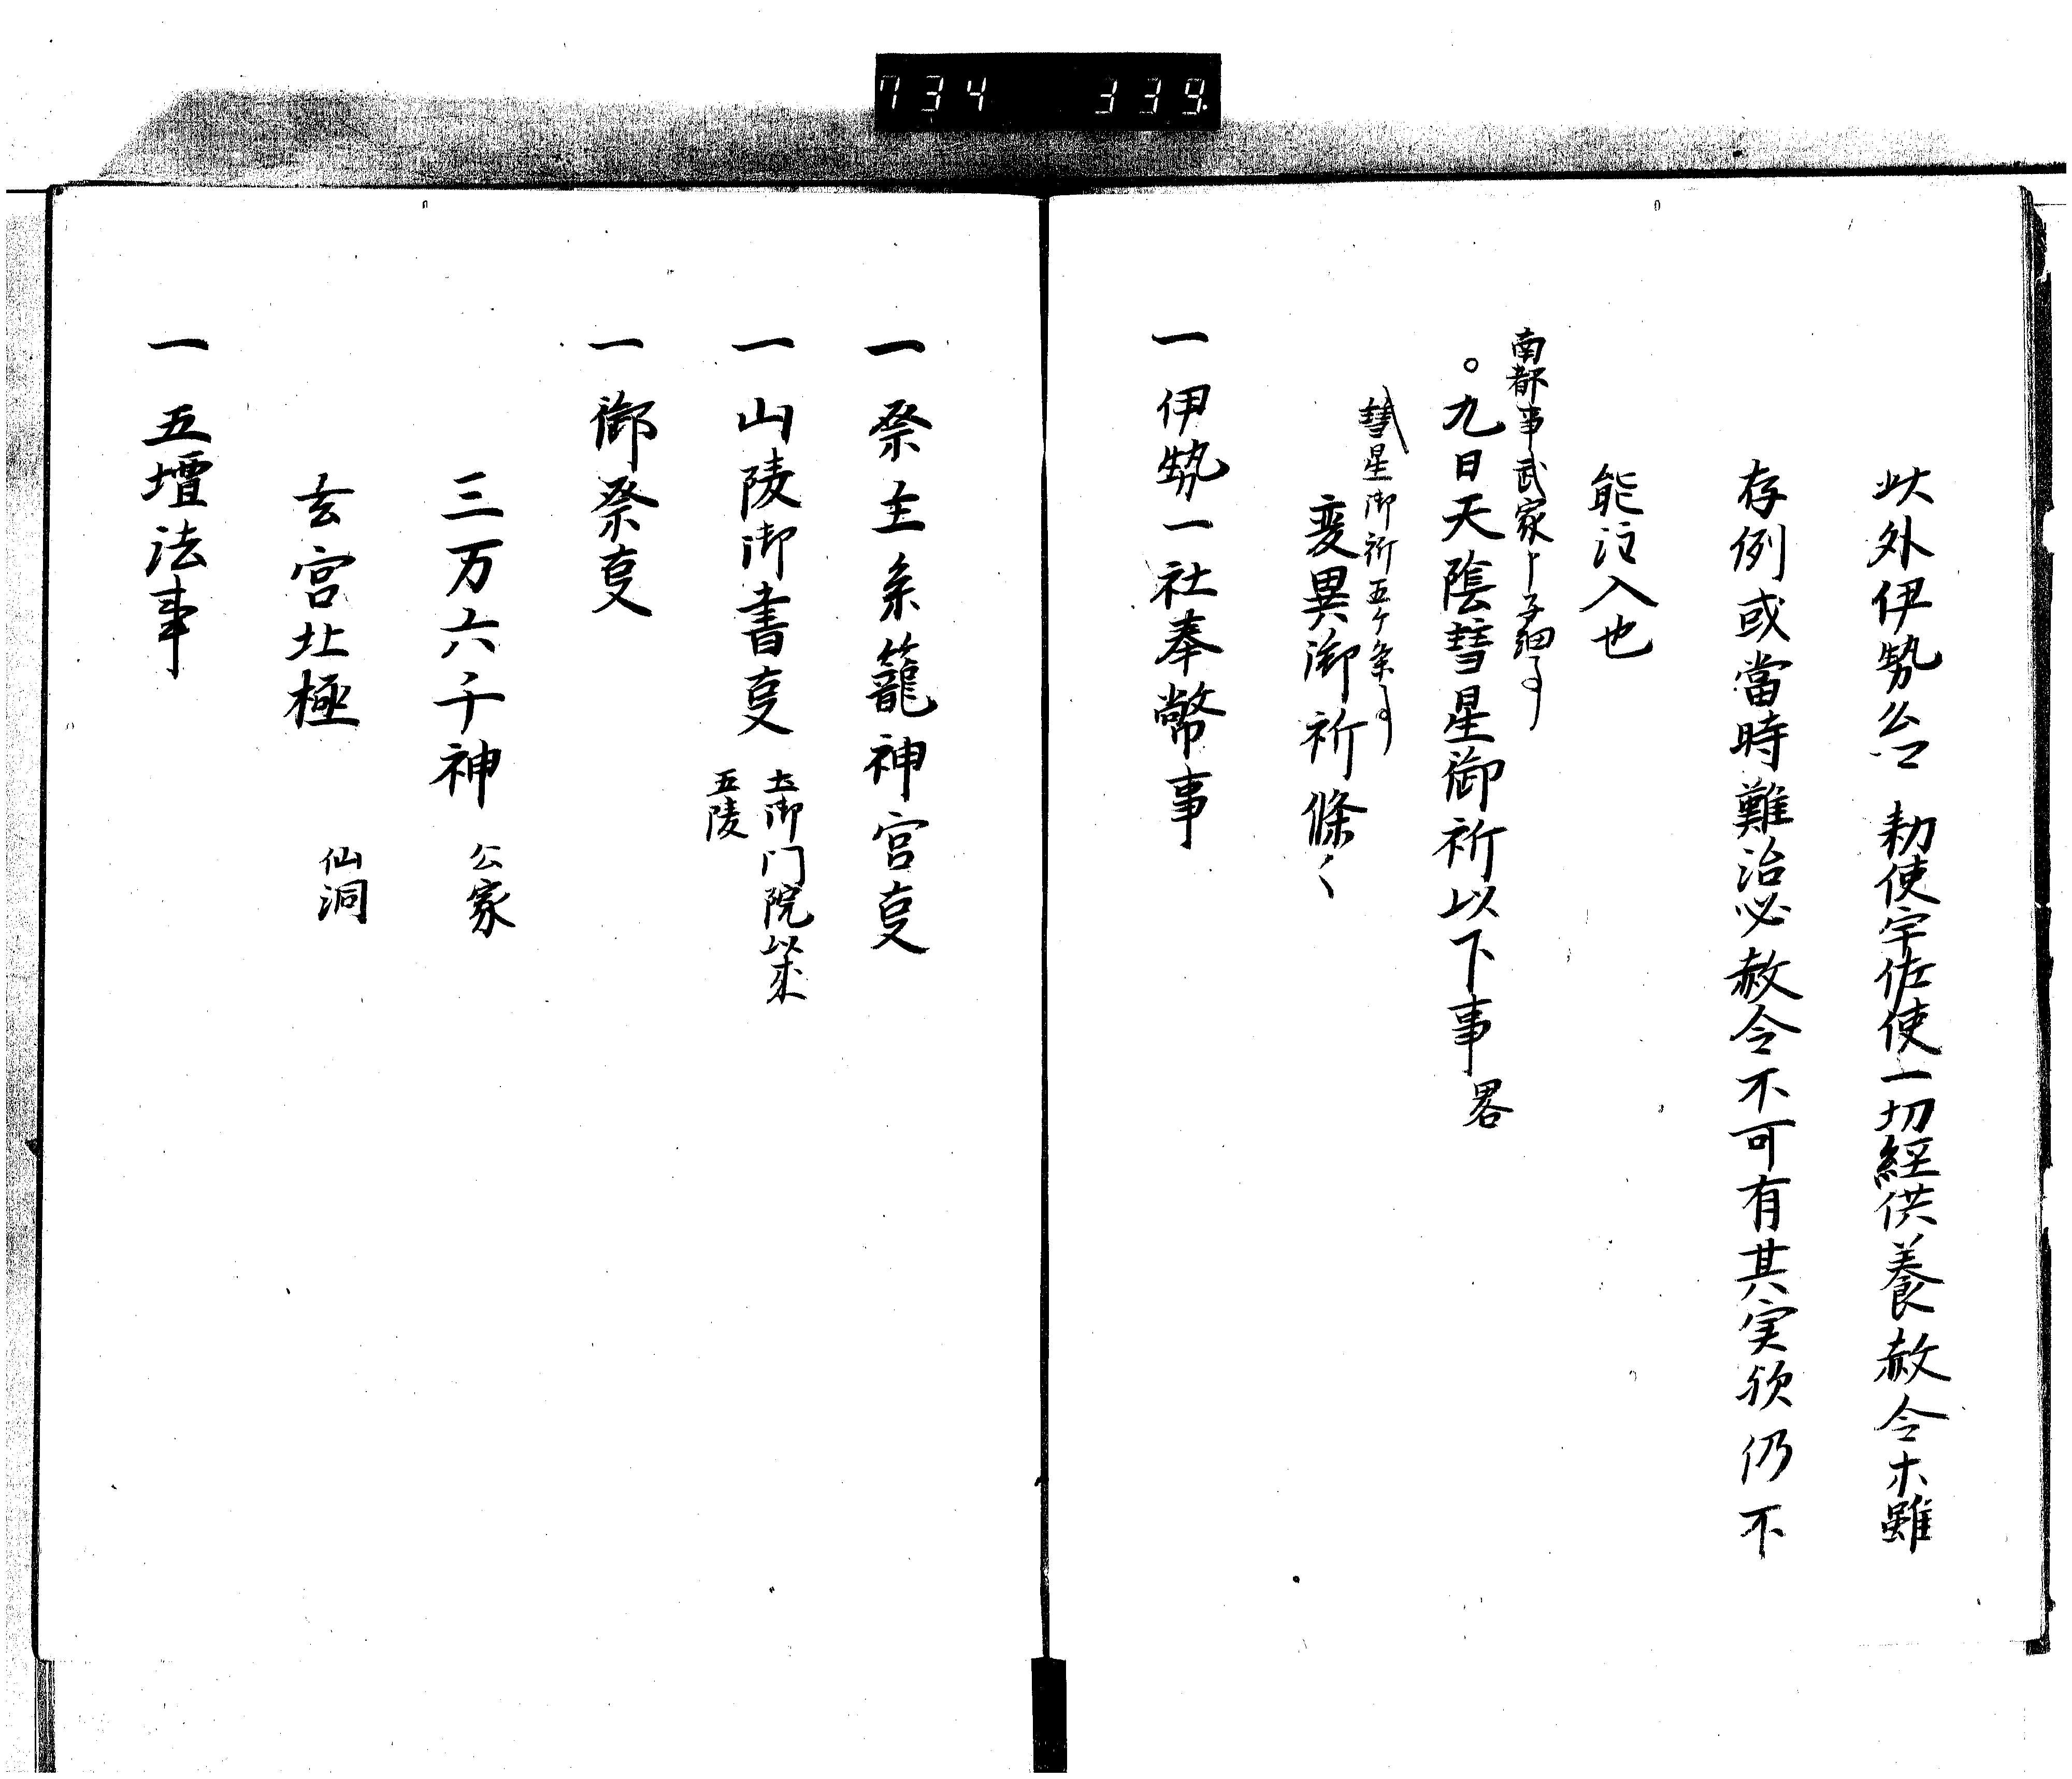 734 339
此外伊勢公卿勅使宇佐使一切経供養赦令ホ雖
存例或當時難治必赦令不可有其実欤仍不
能注入也
南都事武家申子細事
。九日天陰彗星御祈以下事畧
彗星御祈五ケ条事
変異御祈條〻
一伊勢一社奉幣事
一祭主参籠神宮㕝
一山陵御書㕝 土御门院以来
五陵
一御祭㕝
三万六千神 公家
玄宮北極 仙洞
一五壇法事